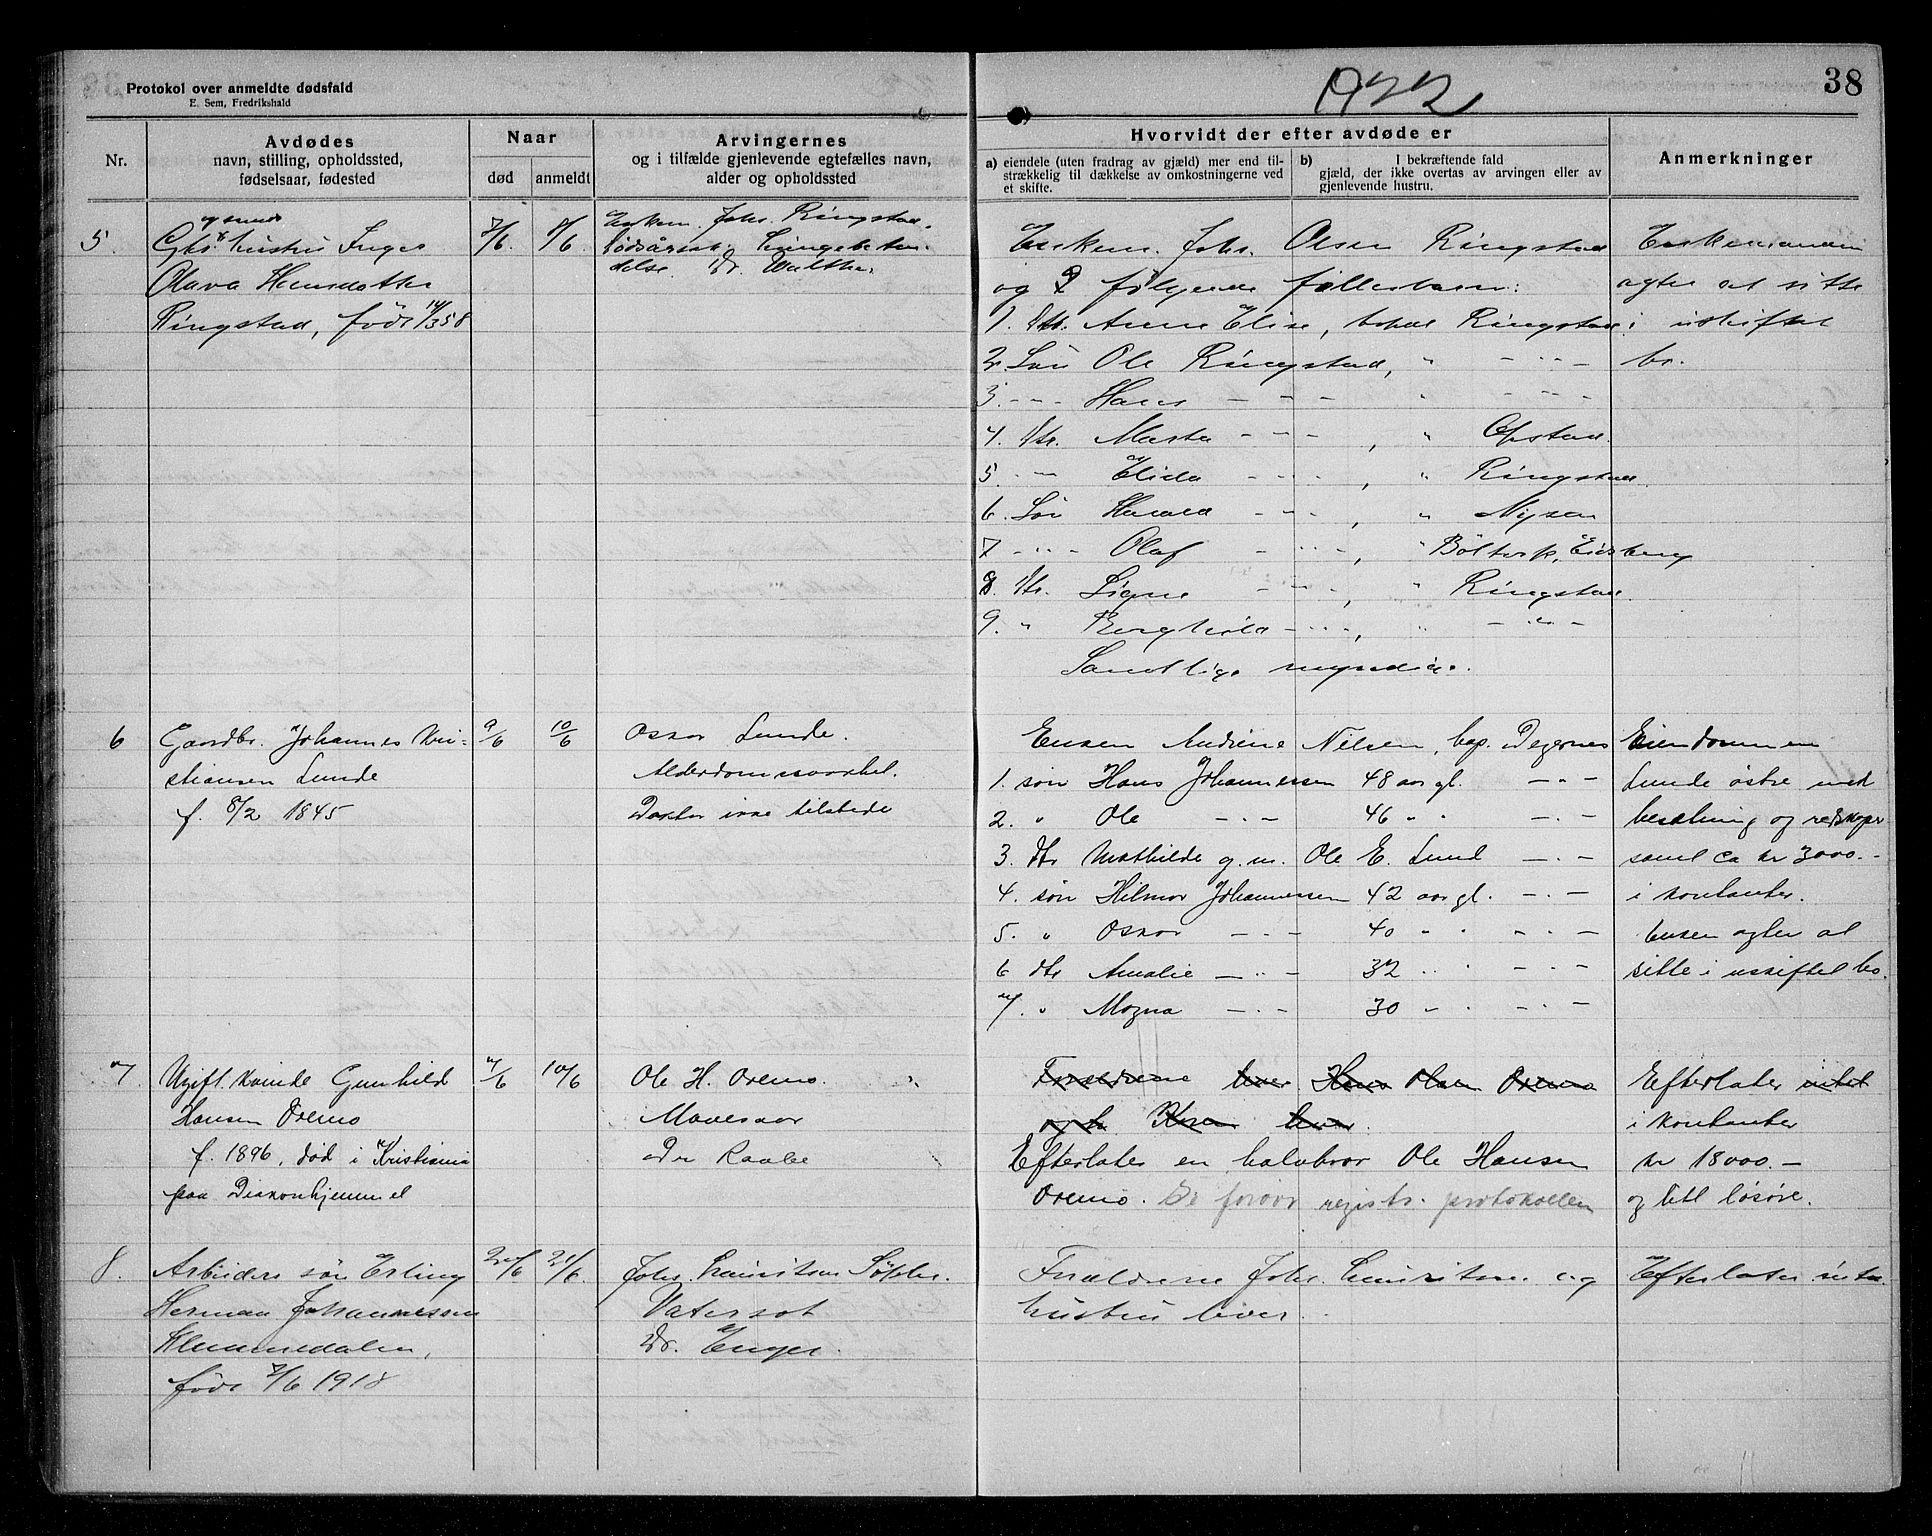 Protokol over anmeldte dødsfald
E. Sem, Fredrikshald
1922
38
Nr.
Avdødes
navn, stilling, opholdssted,
fødselsaar, fødested
Naar
død
anmeldt
Arvingernes
og i tilfælde gjenlevende egtefælles navn,
alder og opholdssted
Hvorvidt der efter avdøde er
a) eiendele (uten fradrag av gjæld) mer end til-
strækkelig til dækkelse av omkostningerne ved
et skifte.
b) I bekræftende fald
gjæld, der ikke overtas av arvingen eller av
gjenlevende hustru.
Anmerkninger
5.
Gbr. hustru Inger
Olava Hansdatter
Ringstad, født 14/3 58
7/6
8/6
Enkem. Johs. Ringstad.
Dødsårsak:
Dr. Walther
Enkem. Johs. Olsen Ringstad
og 9 følgende fællesbarn:
1. Dtr. Anne Elise, bopæl Ringstad
2. Søn Ole Ringstad, " - " -
3. - - - Hans - - - " - " -
4. Dtr. Marta - - - , " Opstad.
5. - - Elida - - - , " Ringstad.
6. Søn Harald - - - , " Nysen
7 - - - Olaf - - - , " Böltork, Eidsberg
8. Dtr. Signe - - - , " Ringstad.
9. " Borghild - - - , " - " -
Samtlige myndige.
Enkemanden
agter at sitte
i uskiftet
bo.
6
Gaardbr. Johannes Kri-
stiansen Lunde
f. 8/2 1845
9/6
10/6
Oskar Lunde.
Alderdomssvakhet.
Doktor ikke tilstede
Enken Andrine Nilsen, bop. Degernes
1. søn Hans Johannessen 48 aar gl. - " -
2. " Ole - " - 46 " " - " -
3. dtr Mathilde g. m. Ole E. Lund - " -
4. søn Hilmar Johannessen 42 aar gl. - " -
5. " Oskar - " - 40 " " - " -
6 dtr Amalie - " - 32 " " - " -
7. " Magna - " - 30 " " - " -
Eiendommen
Lunde østre med
besætning og redskaper
samt ca kr 3000.-
i kontanter.
Enken agter at
sitte i uskiftet bo.
7.
Ugift kvinde Gunhild
Hansen Oremo
f. 1896, død i Kristiania
paa Diakonhjemmet
7/6
10/6
Ole H. Oremo.
Mavesaar
Dr Raabe
Forældrene lever Hans Olsen Oremo
Efterlater en halvbror Ole Hansen
Oremo. Se forøvr registr. protokollen
Efterlater intet
i kontanter
kr 18000.-
og litt løsøre.
8.
Arbeiders søn Erling
Herman Johannessen
Klemmedalen,
født 7/6 1918
20/6
21/6
Johs. Lauritsen
Vatersot
Dr. Enger.
Forældrene Johs. Lauritsen og
hustru lever.
Efterlater intet.